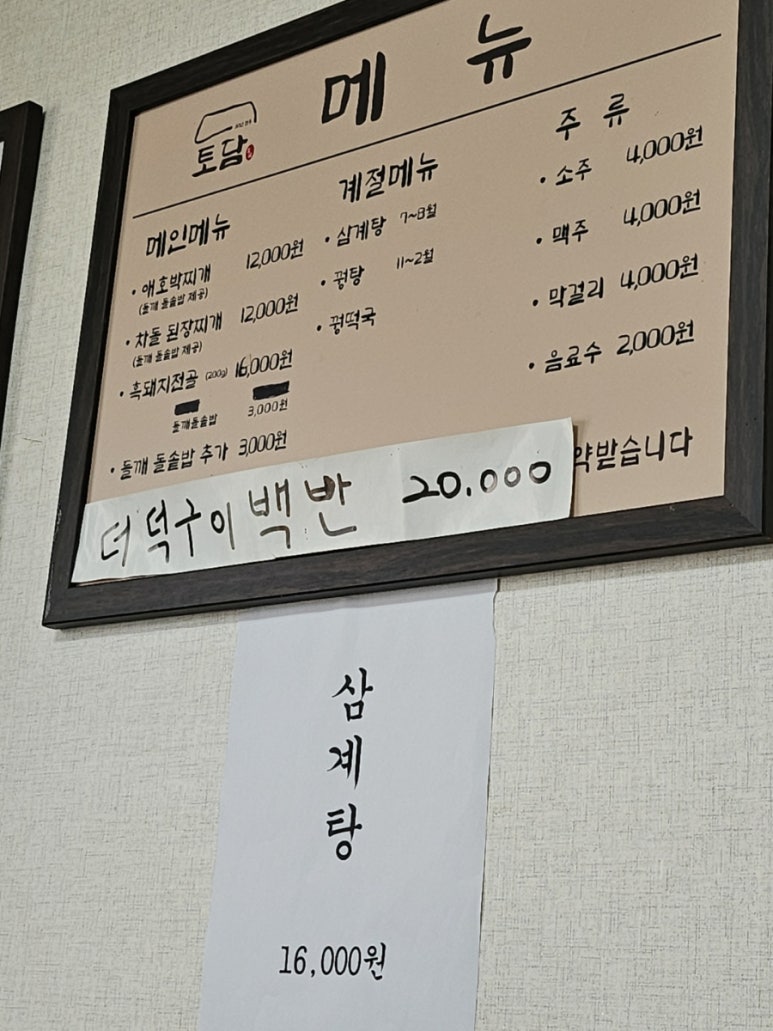 메뉴
토담
메인메뉴
• 애호박찌개 12,000원
(들깨 돌솥밥 제공)
• 차돌 된장찌개 12,000원
(들깨 돌솥밥 제공)
• 흑돼지전골 (200g) 16,000원
들깨돌솥밥 3,000원
• 들깨 돌솥밥 추가 3,000원
계절메뉴
• 삼계탕 7~8월
• 꿩탕 11~2월
• 꿩떡국
주류
• 소주 4,000원
• 맥주 4,000원
• 막걸리 4,000원
• 음료수 2,000원
약받습니다
더덕구이백반 20.000
삼계탕
16,000원